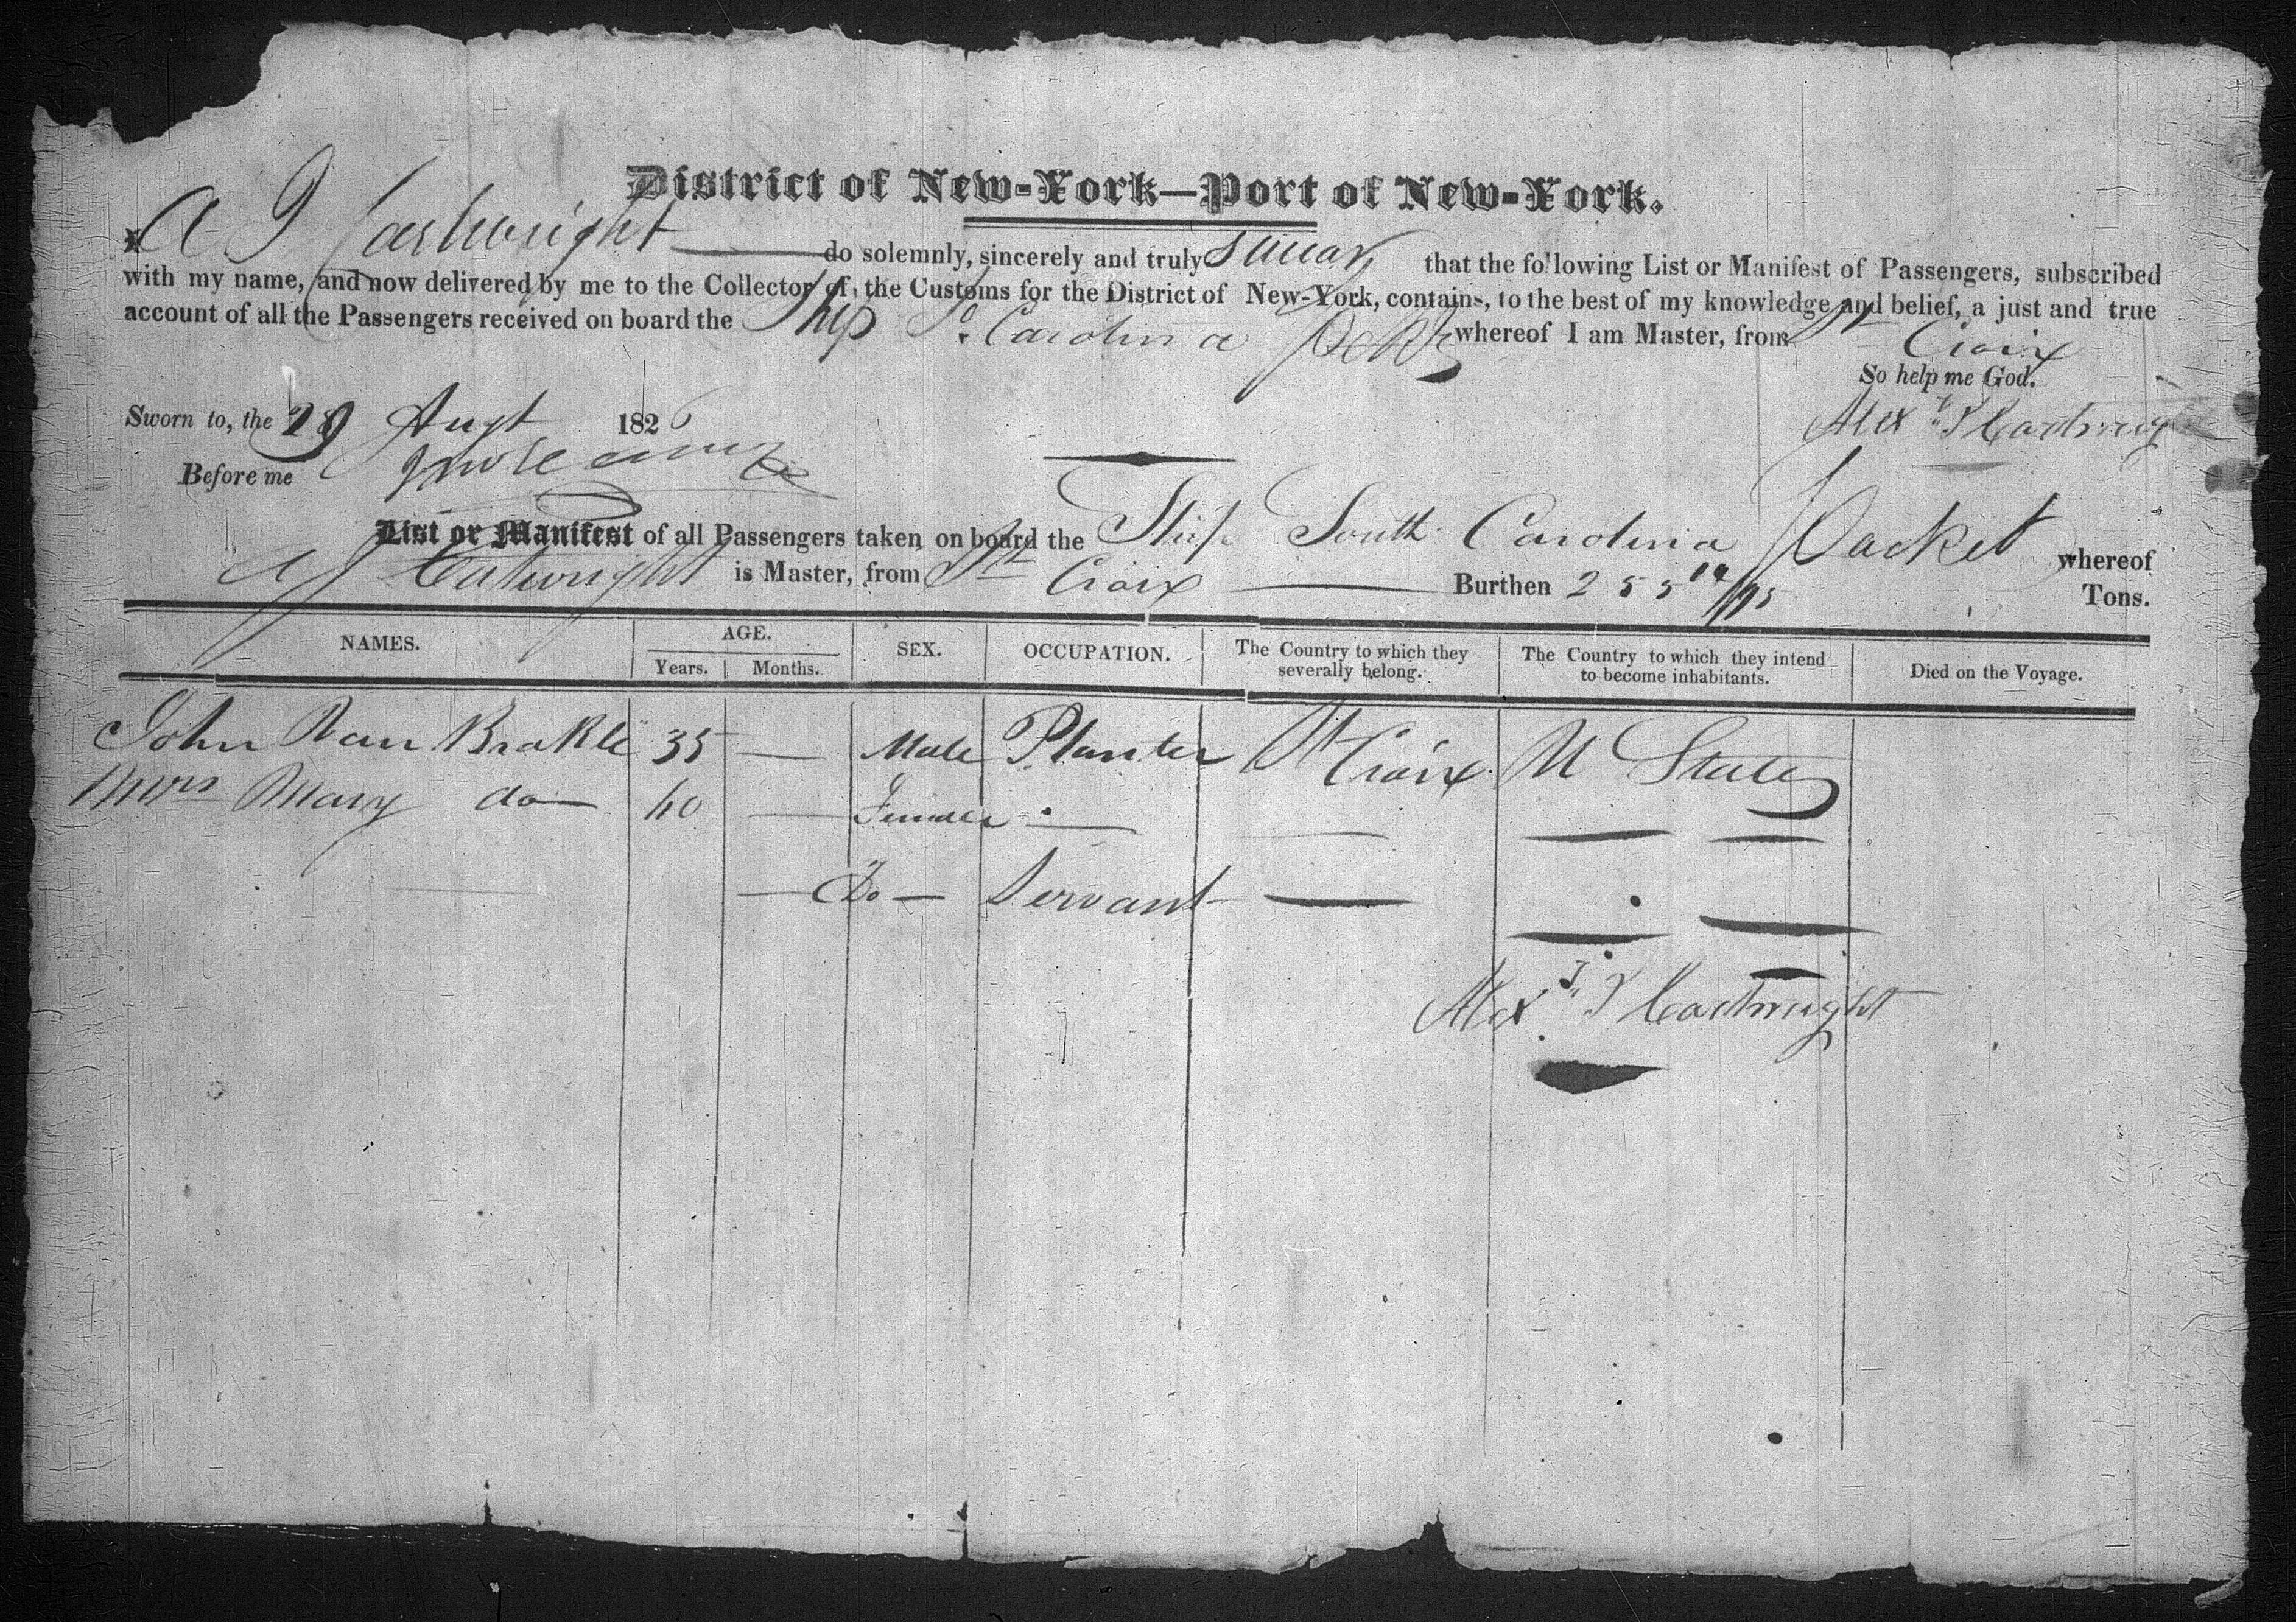 District of New-York—Port of New-York.
I A J Cartwright do solemnly, sincerely and truly swear that the following List or Manifest of Passengers, subscribed
with my name, and now delivered by me to the Collector of the Customs for the District of New-York, contains, to the best of my knowledge and belief, a just and true
account of all the Passengers received on board the Ship So Carolina whereof I am Master, from St Croix
So help me God.
Sworn to, the 29 Augt 1826 Alex J Cartwrig
Before me
List or Manifest of all Passengers taken on board the Ship South Carolina Packet whereof
A J Cartwright is Master, from St Croix Burthen 255 14/95 Tons.
NAMES. AGE. SEX. OCCUPATION. The Country to which they severally belong. The Country to which they intend to become inhabitants. Died on the Voyage.
Years. Months.
John Van Brakle 35 — Male Planter St Croix U States
Mrs Mary do 40 — Female —
— Do — Servant —
Alex J Cartwright